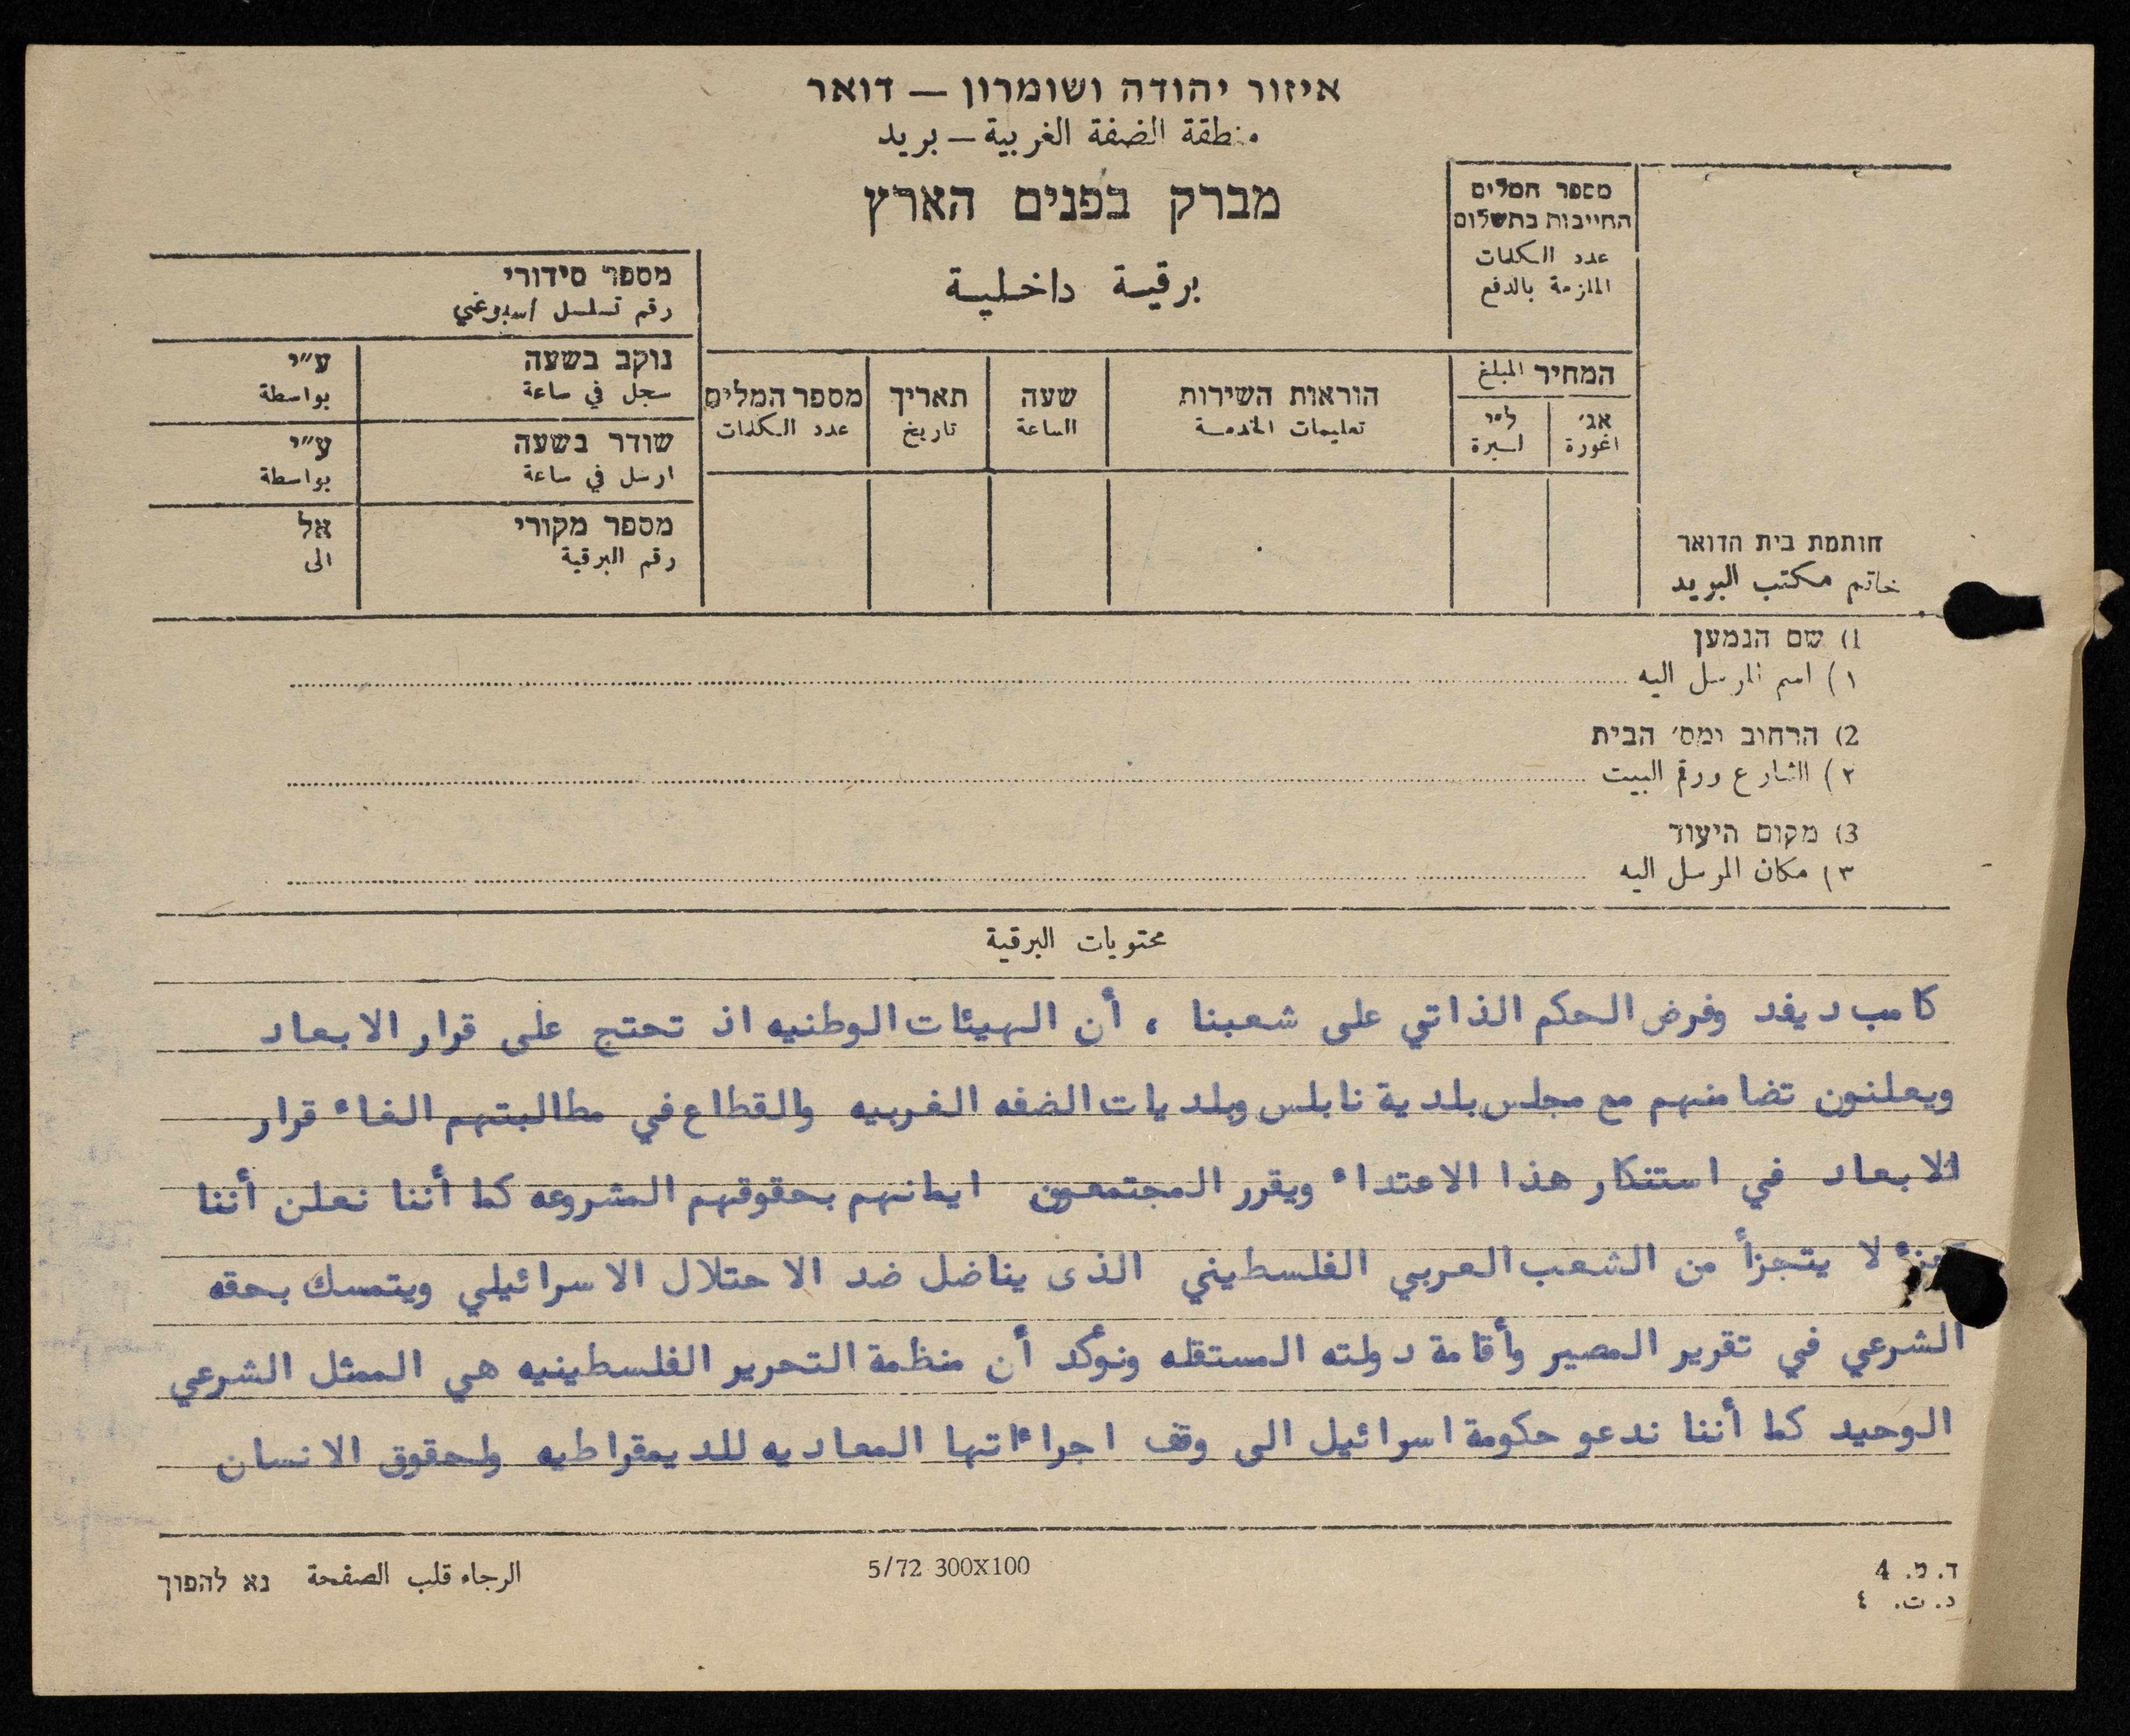 איזור יהודה ושומרון – דואר
منطقة الضفة الغربية – بريد
מברק בפנים הארץ
برقية داخلية
מספר המלים
החייבות בתשלום
عدد الكلمات
الملزمة بالدفع
המחיר المبلغ
אג׳ ל״י
اغورة ليرة
הוראות השירות
تعليمات الخدمة
שעה
الساعة
תאריך
تاريخ
מספר המלים
عدد الكلمات
מספר סידורי
رقم تسلسل اسبوعي
נוקב בשעה ע״י
سجل في ساعة بواسطة
שודר בשעה ע״י
ارسل في ساعة بواسطة
מספר מקורי אל
رقم البرقية الى
חותמת בית הדואר
خاتم مكتب البريد
1) שם הנמען
١) اسم المرسل اليه
2) הרחוב ומס׳ הבית
٢) الشارع ورقم البيت
3) מקום היעוד
٣) مكان المرسل اليه
محتويات البرقية
كامب ديفد وفرض الحكم الذاتي على شعبنا ، أن الهيئات الوطنيه اذ تحتج على قرار الابعاد
ويعلنون تضامنهم مع مجلس بلدية نابلس وبلديات الضفه الغربيه والقطاع في مطالبتهم الغاء قرار
الابعاد في استنكار هذا الاعتداء ويقرر المجتمعون ايمانهم بحقوقهم المشروعه كما أننا نعلن أننا
جزء لا يتجزأ من الشعب العربي الفلسطيني الذى يناضل ضد الاحتلال الاسرائيلي ويتمسك بحقه
الشرعي في تقرير المصير وأقامة دولته المستقله ونوٴكد أن منظمة التحرير الفلسطينيه هي الممثل الشرعي
الوحيد كما أننا ندعو حكومة اسرائيل الى وقف اجراءاتها المعاديه للديمقراطيه ولحقوق الانسان
ד. מ. 4
د. ت. ٤
5/72 300X100
الرجاء قلب الصفحة נא להפוך